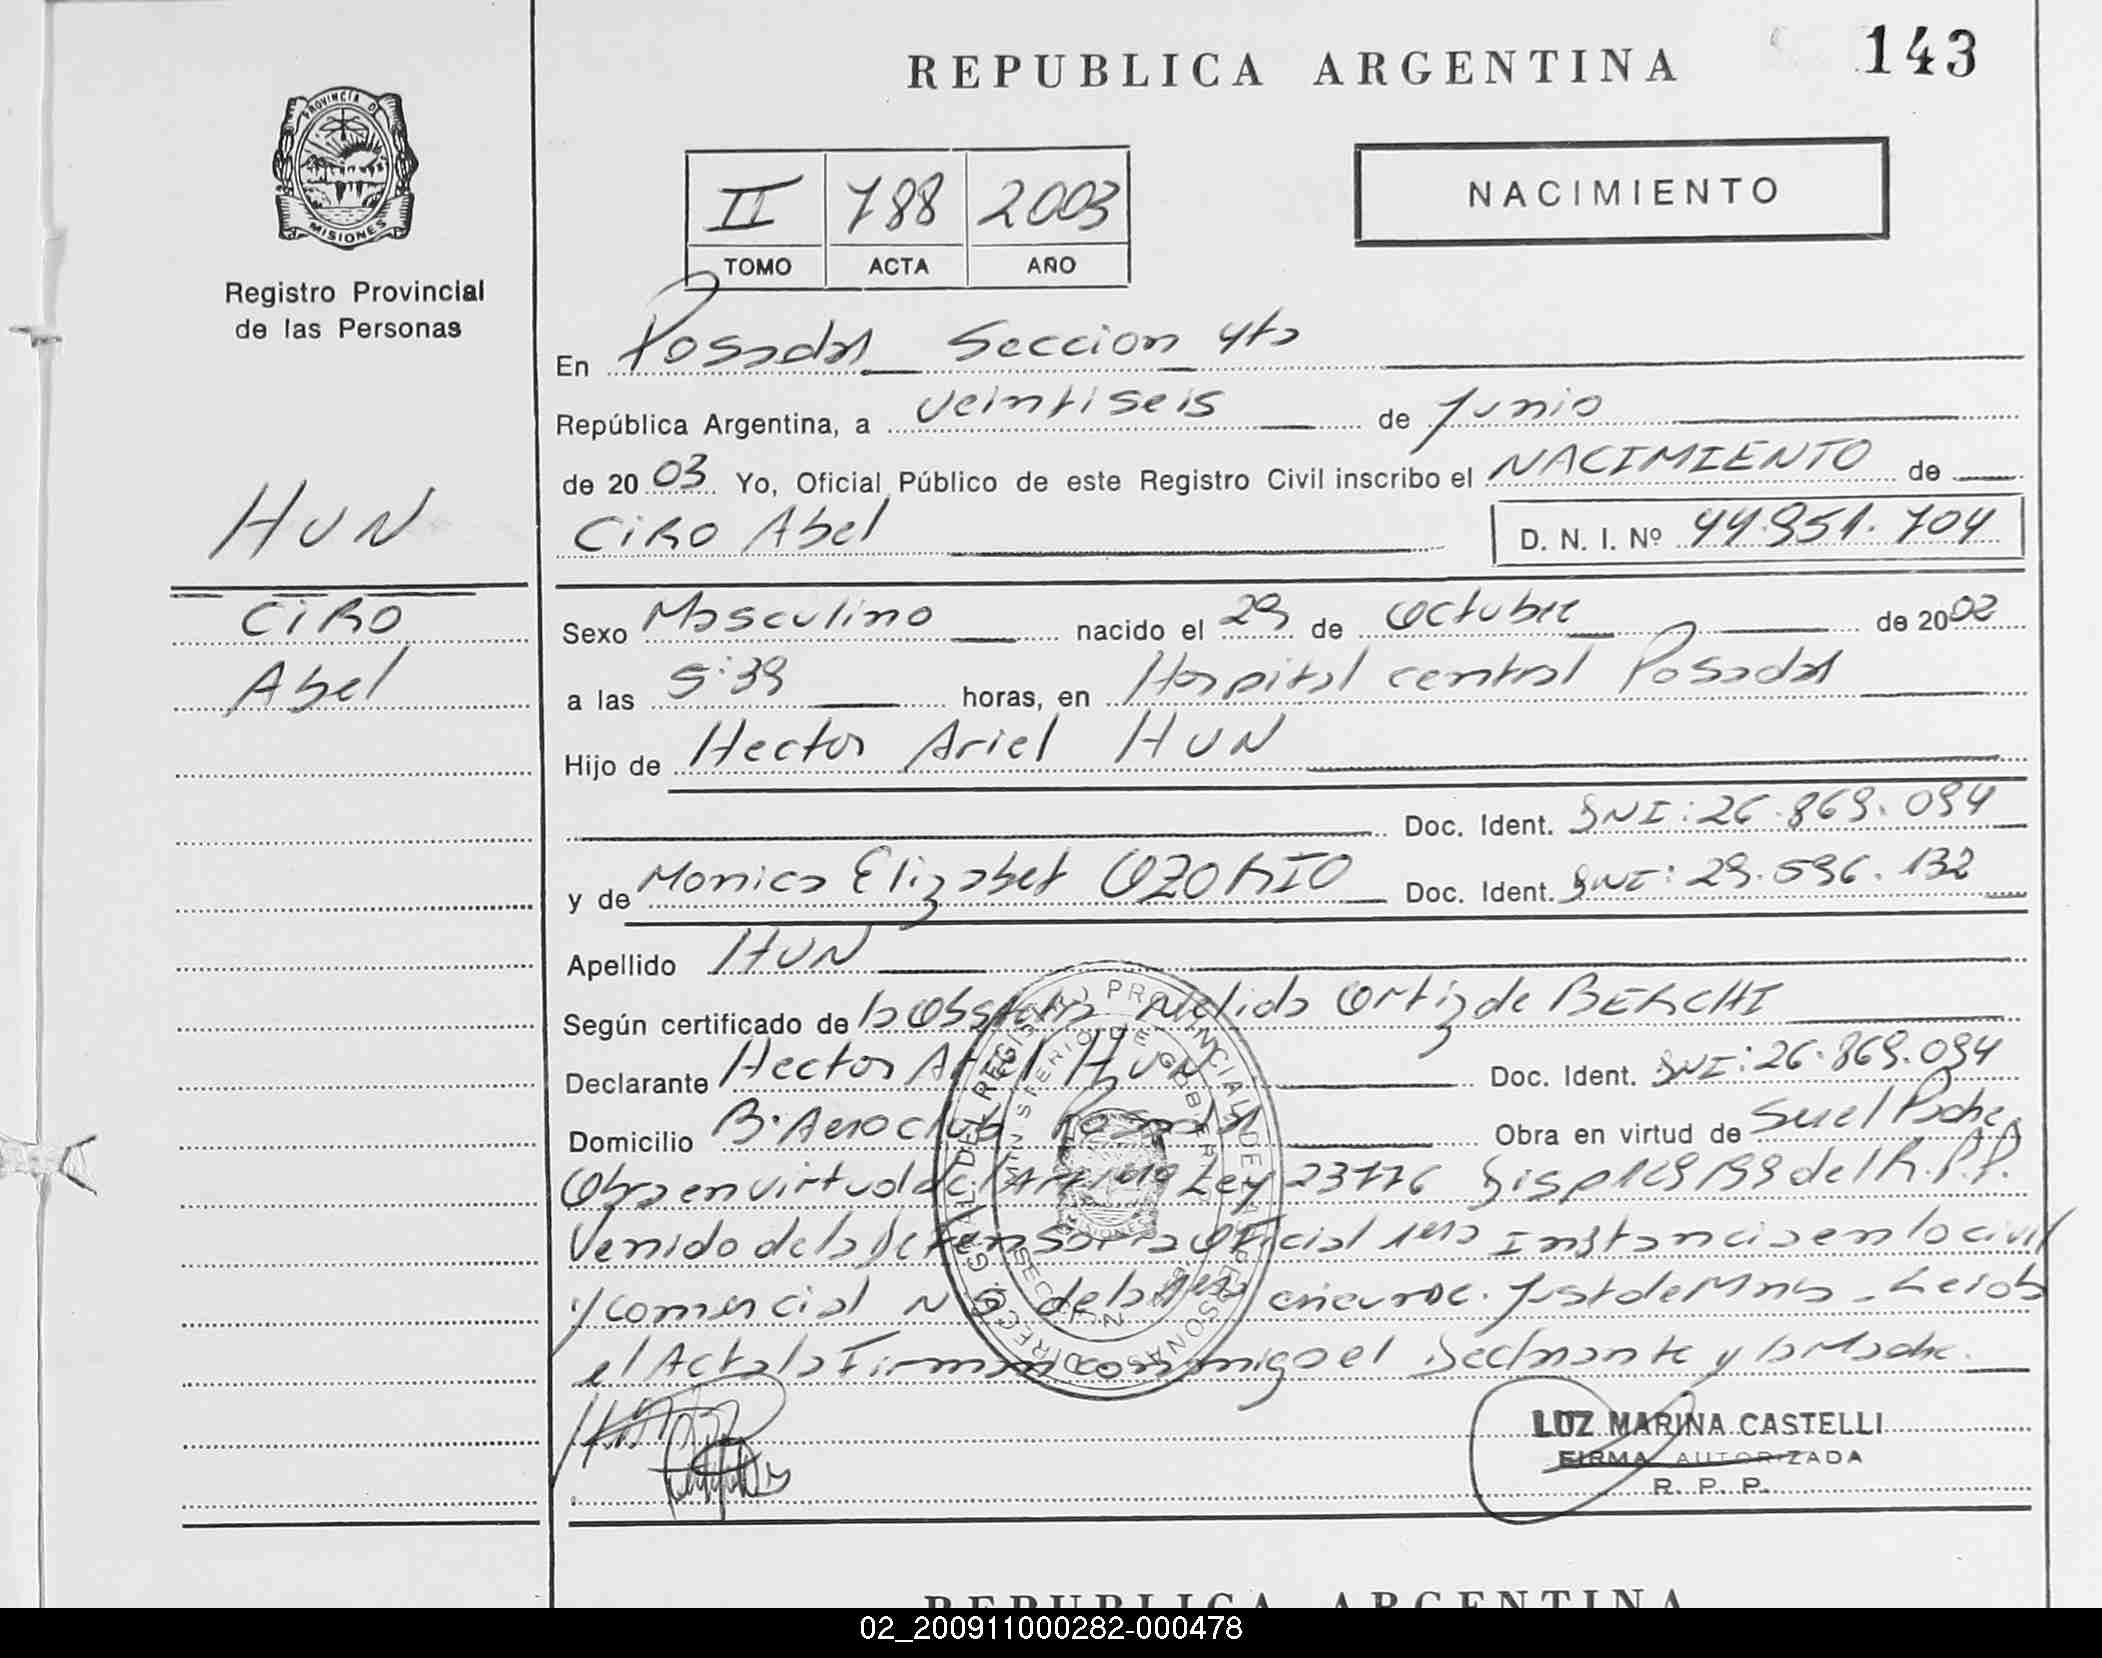 REPUBLICA ARGENTINA
143
PROVINCIA DE
MISIONES
Registro Provincial
de las Personas
NACIMIENTO
II 788 2003
TOMO ACTA AÑO
En Posadas Seccion 4ta
República Argentina, a veintiseis de Junio
de 2003 Yo, Oficial Público de este Registro Civil inscribo el NACIMIENTO de
HUN
CiRO Abel
D. N. I. Nº 44.951.704
CiRO
Abel
Sexo Masculino nacido el 29 de Octubre de 2002
a las 5:39 horas, en Hospital central Posadas
Hijo de Hector Ariel HUN
Doc. Ident. DNI: 26.869.094
y de Monica Elizabet OZORIO Doc. Ident. DNI: 29.596.132
Apellido HUN
Según certificado de la Obstetra Nelida Ortiz de BERCHI
Declarante Hector Ariel HUN Doc. Ident. DNI: 26.869.094
Domicilio B. Aeroclub Posadas Obra en virtud de
Obra en virtud del Ley 23776 Disp 129/99 del R.P.P.
Venido de la Defensoria Oficial 1era Instancia en lo civil
y comercial de la Just de Mnes - Leida
el Acta la Firman conmigo el Declarante y la Madre.
DIREC. GRAL. DEL REGISTRO PROVINCIAL DE LAS PERSONAS
MINISTERIO DE GOBIER
MISIONES
SECCION
LUZ MARINA CASTELLI
FIRMA AUTORIZADA
R. P. P.
REPUBLICA ARGENTINA
02_200911000282-000478